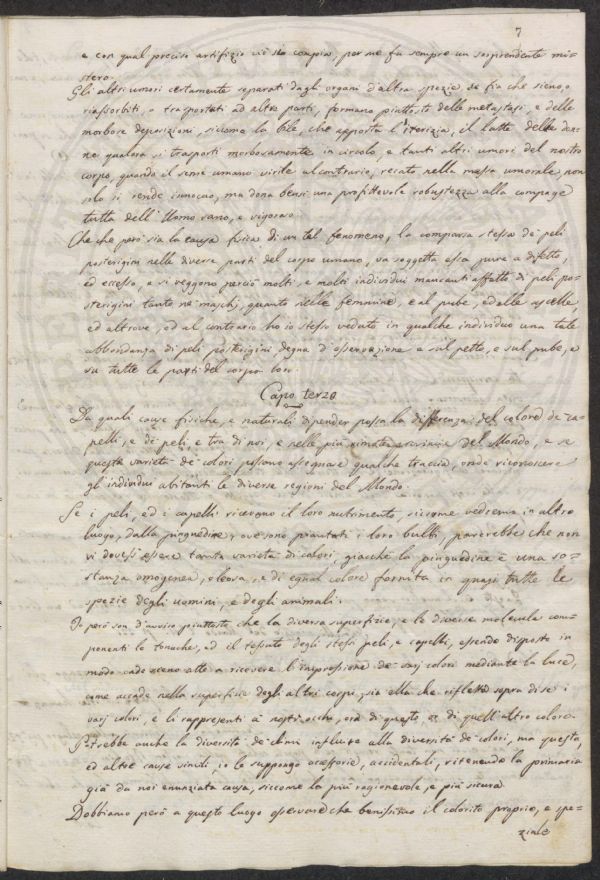 7
e con qual preciso artifizio ciò sia compia, per me fu sempre un sorprendente mi=
stero.
Gli altri umori certamente separati dagli organi d'altra spezie, se fia che sieno
riassorbiti, o trasportati ad altre parti, formano piuttosto delle metastasi, e delle
morbose deposizioni, siccome la bile, che apporta l'iterizia, il latte delle don=
ne qualora si trasporti morbosamente in circolo, e tanti altri umori del nostro
corpo, quando il seme umano virile al contrario, recato nella massa umorale, non
solo si rende innocuo, ma dona bensì una profittevole robustezza alla compage
tutta dell'Uomo sano, e vigoroso.
Che che però sia la causa fisica di un tal fenomeno, la comparsa stessa de' peli
posterigini nelle diverse parti del corpo umano, va soggetta essa pure a difetto,
ed eccesso, e si veggono perciò molti, e molti individui mancanti affatto di peli po=
sterigini tanto ne' maschj, quanto nelle femmine, e al pube, e delle ascelle,
ed altrove, ed al contrario ho io stesso veduto in qualche individuo una tale
abbondanza di peli posterigini degna d'osservazione e sul petto, e sul pube, e
su tutte le parti del corpo loro.
Capo terzo
Da quali cause fisiche, e naturali dipender possa la differenza del colore de' ca=
pelli, e de' peli, e tra di noi, e nelle più rimote provincie del Mondo, e se
queste varietà de' colori possano assegnare qualche traccia, onde riconoscere
gl'individui abitanti le diverse regioni del Mondo.
Se i peli, ed i capelli ricevono il loro nutrimento, siccome vedremo in altro
luogo, dalla pinguedine, ove sono piantati i loro bulbi, parerebbe che non
vi dovess' essere tanta varietà di colori, giacchè la pinguedine è una so=
stanza omogenea, oleosa, e di egual colore fornita in quasi tutte le
spezie degli uomini, e degli animali.
Io però son d'avviso piuttosto che la diversa superfizie, e le diverse molecule com=
ponenti le tonache, ed il tessuto degli stessi peli, e capelli, essendo disposto in
modo onde sieno atte a ricevere l'impressione de' varj colori mediante la luce,
come accade nella superficie degli altri corpi, sia ella che rifletta sopra di se i
varj colori, e li rappresenti a' nostri occhi, ora di questo, or di quell'altro colore.
Potrebbe anche la diversità de' climi influire alla diversità de' colori, ma questa,
ed altre cause simili, io le suppongo accessorie, accidentali, ritenendo la primaria
già da noi enunziata causa, siccome la più ragionevole, e più sicura.
Dobbiamo però a questo luogo osservare che benissimo il colorito proprio, e spe=
ziale